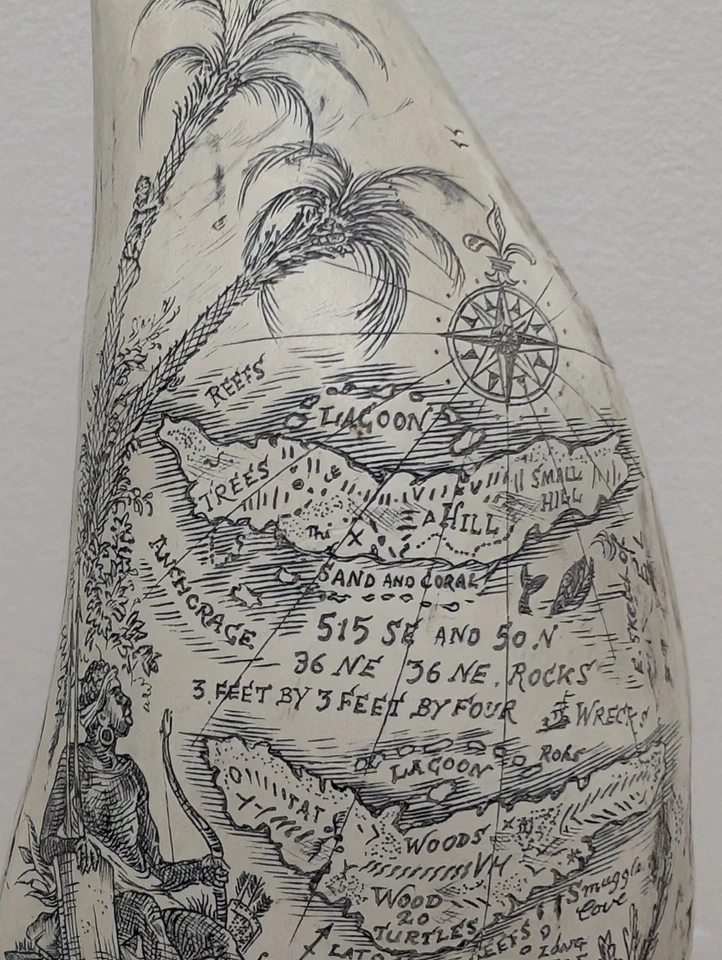 REEFS
LAGOON
TREES
SMALL
HILL
HILL
SAND AND CORAL
ANCHORAGE
515 SE AND 50.N
36 NE 36 NE. ROCKS
3. FEET BY 3 FEET BY FOUR
WRECKS
LAGOON
WOODS
WOOD
20
TURTLES
Smuggle
Cove